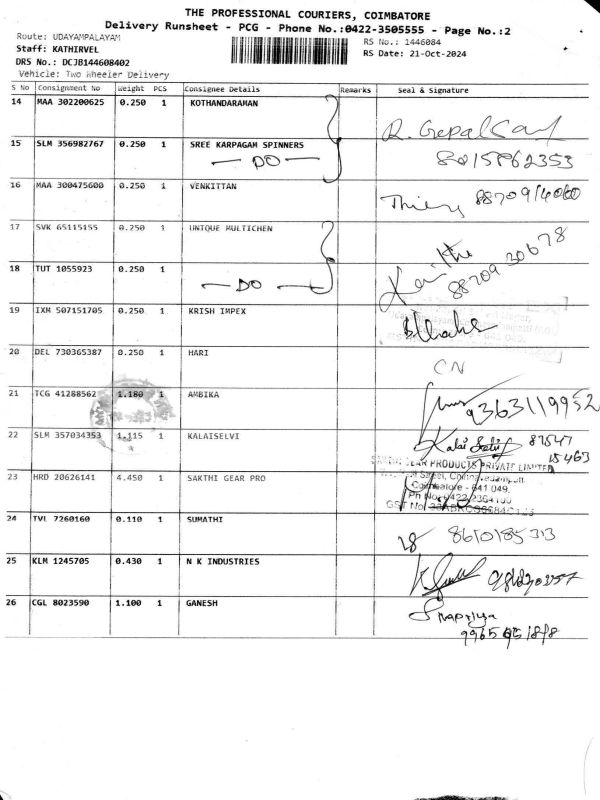 THE PROFESSIONAL COURIERS, COIMBATORE
Delivery Runsheet - PCG - Phone No.:0422-3505555 - Page No.:2
Route: UDAYAMPALAYAM
RS No.: 1446084
Staff: KATHIRVEL
RS Date: 21-Oct-2024
DRS No.: DCJB144608402
Vehicle: Two Wheeler Delivery
S No Consignment No Weight PCS Consignee Details Remarks Seal & Signature
14 MAA 302200625 0.250 1 KOTHANDARAMAN
15 SLM 356982767 0.250 1 SREE KARPAGAM SPINNERS
— DO —
16 MAA 300475600 0.250 1 VENKITTAN
17 SVK 65115155 0.250 1 UNIQUE MULTICHEN
18 TUT 1055923 0.250 1
— DO —
88709 20678
19 IXM 507151705 0.250 1 KRISH IMPEX
20 DEL 730365387 0.250 1 HARI CN
21 TCG 41288562 1.180 1 AMBIKA 9363119952
22 SLM 357034353 1.115 1 KALAISELVI Kalai 87547
15463
GEAR PRODUCTS PRIVATE LIMITED
23 HRD 20626141 4.450 1 SAKTHI GEAR PRO
Coimbatore - 641 049.
24 TVL 7260160 0.110 1 SUMATHI 8610185313
25 KLM 1245705 0.430 1 N K INDUSTRIES
26 CGL 8023590 1.100 1 GANESH